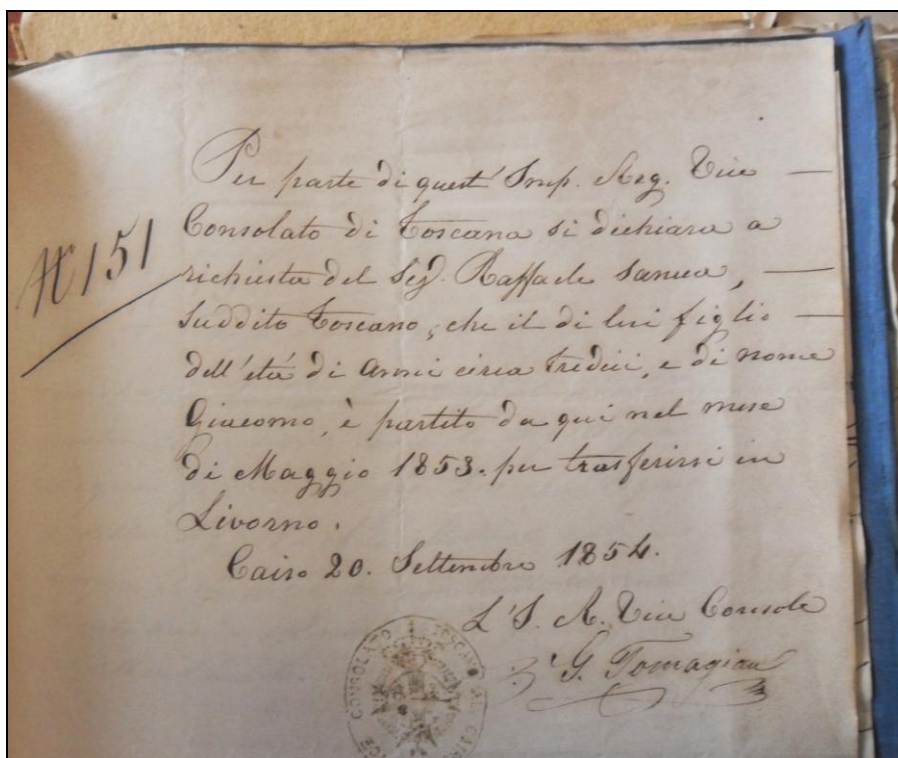 N 151
Per parte di quest' Imp. Reg. Vice
Consolato di Toscana si dichiara a
richiesta del Sig.r Raffaele Sanua,
Suddito Toscano, che il di lui figlio
dell'età di Anni circa tredici, e di nome
Giacomo, è partito da qui nel mese
di Maggio 1853. per trasferirsi in
Livorno.
Cairo 20. Settembre 1854.
L'I. R. Vice Console
G. Tomagian
VICE CONSOLATO TOSCANO AL CAIRO